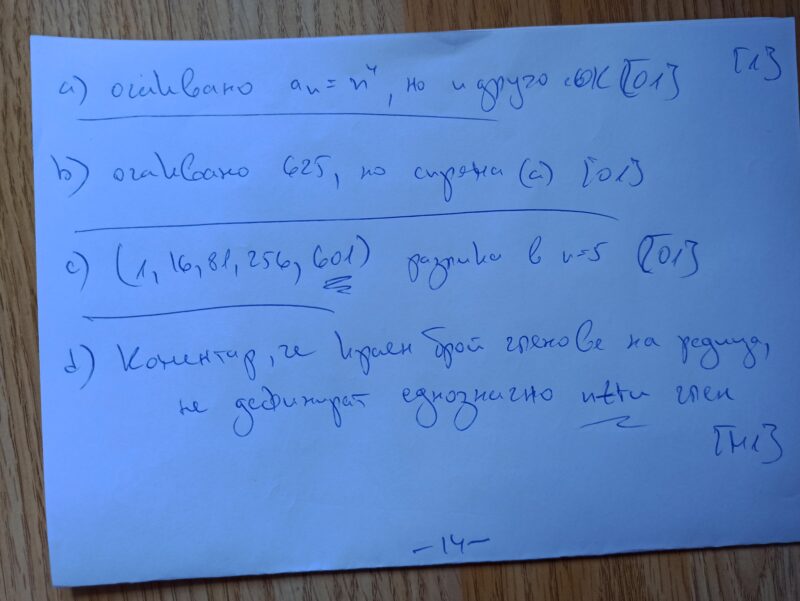 a) очаквано aₙ = n⁴, но и друго е ОК [O1] [1]
b) очаквано 625, но спрямо (a) [O1]
c) (1, 16, 81, 256, 601) разлика в n=5 [O1]
d) Коментар, че краен брой членове на редица,
не дефинират еднозначно n-ти член
[M1]
-14-